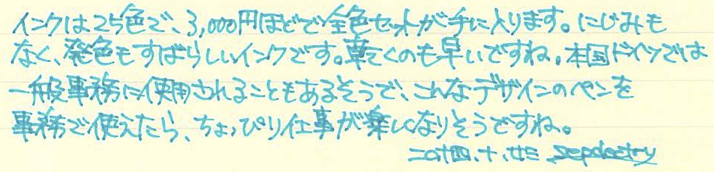 インクは25色で、3,000円ほどで全色セットが手に入ります。にじみも
なく、発色もすばらしいインクです。乾くのも早いですね。本国ドイツでは
一般事務に使用されることもあるそうで、こんなデザインのペンを
事務で使えたら、ちょっぴり仕事が楽しくなりそうですね。